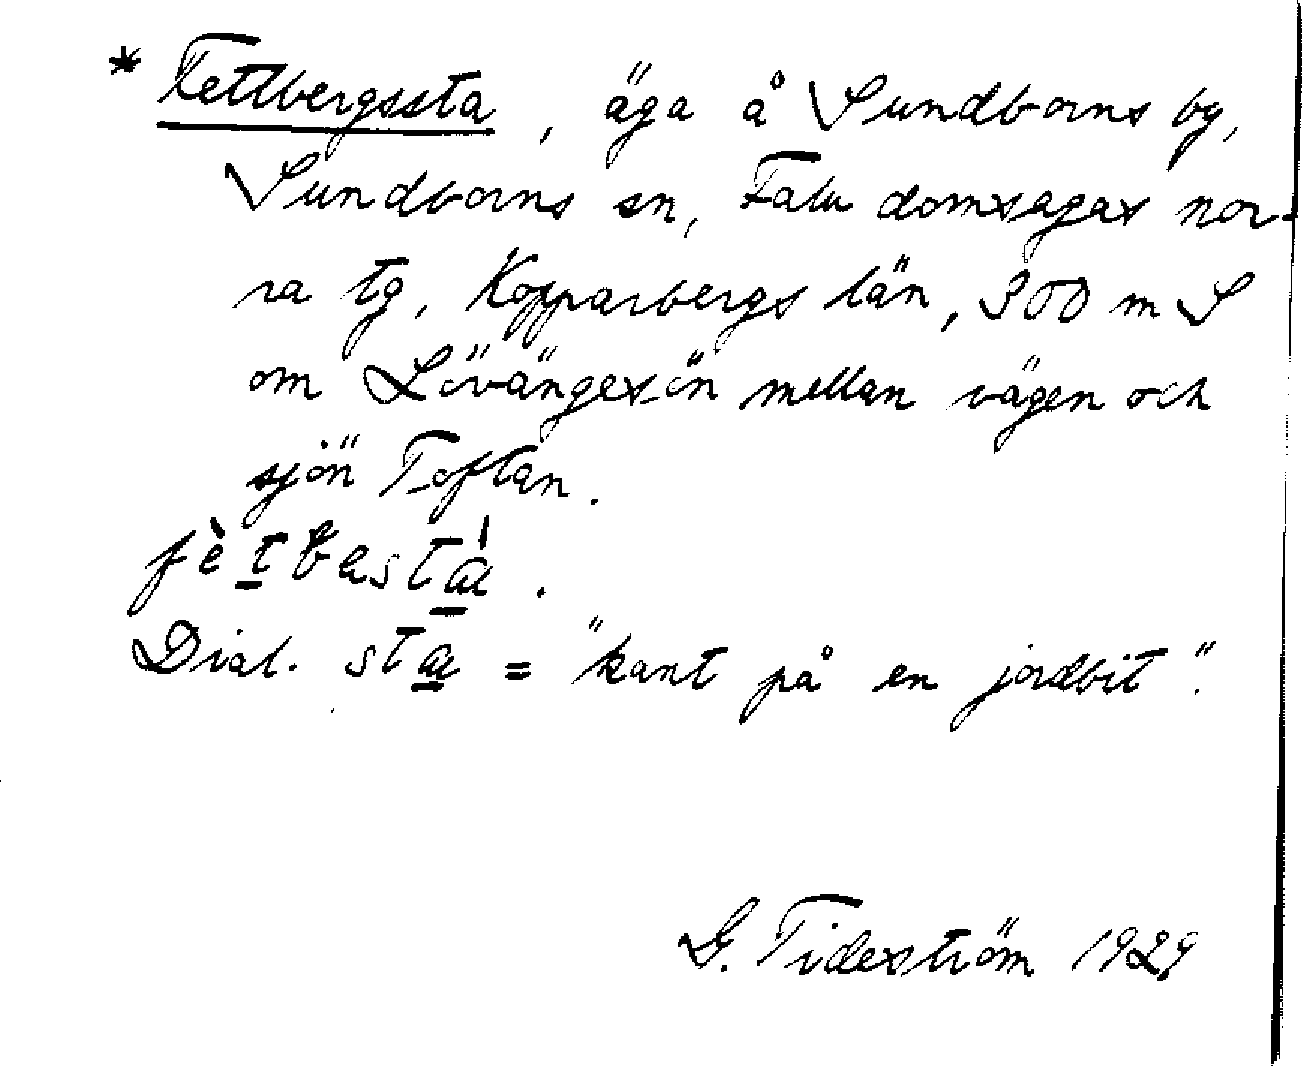 * Fettbergssta, äga å Sundborns by,
Sundborns sn, Falu domsagas nor-
ra tg, Kopparbergs län, 300 m S
om Lövängesön mellan vägen och
sjön Toftan.
fètbestá.
Dial. sta = "kant på en jordbit".
G. Tideström 1929